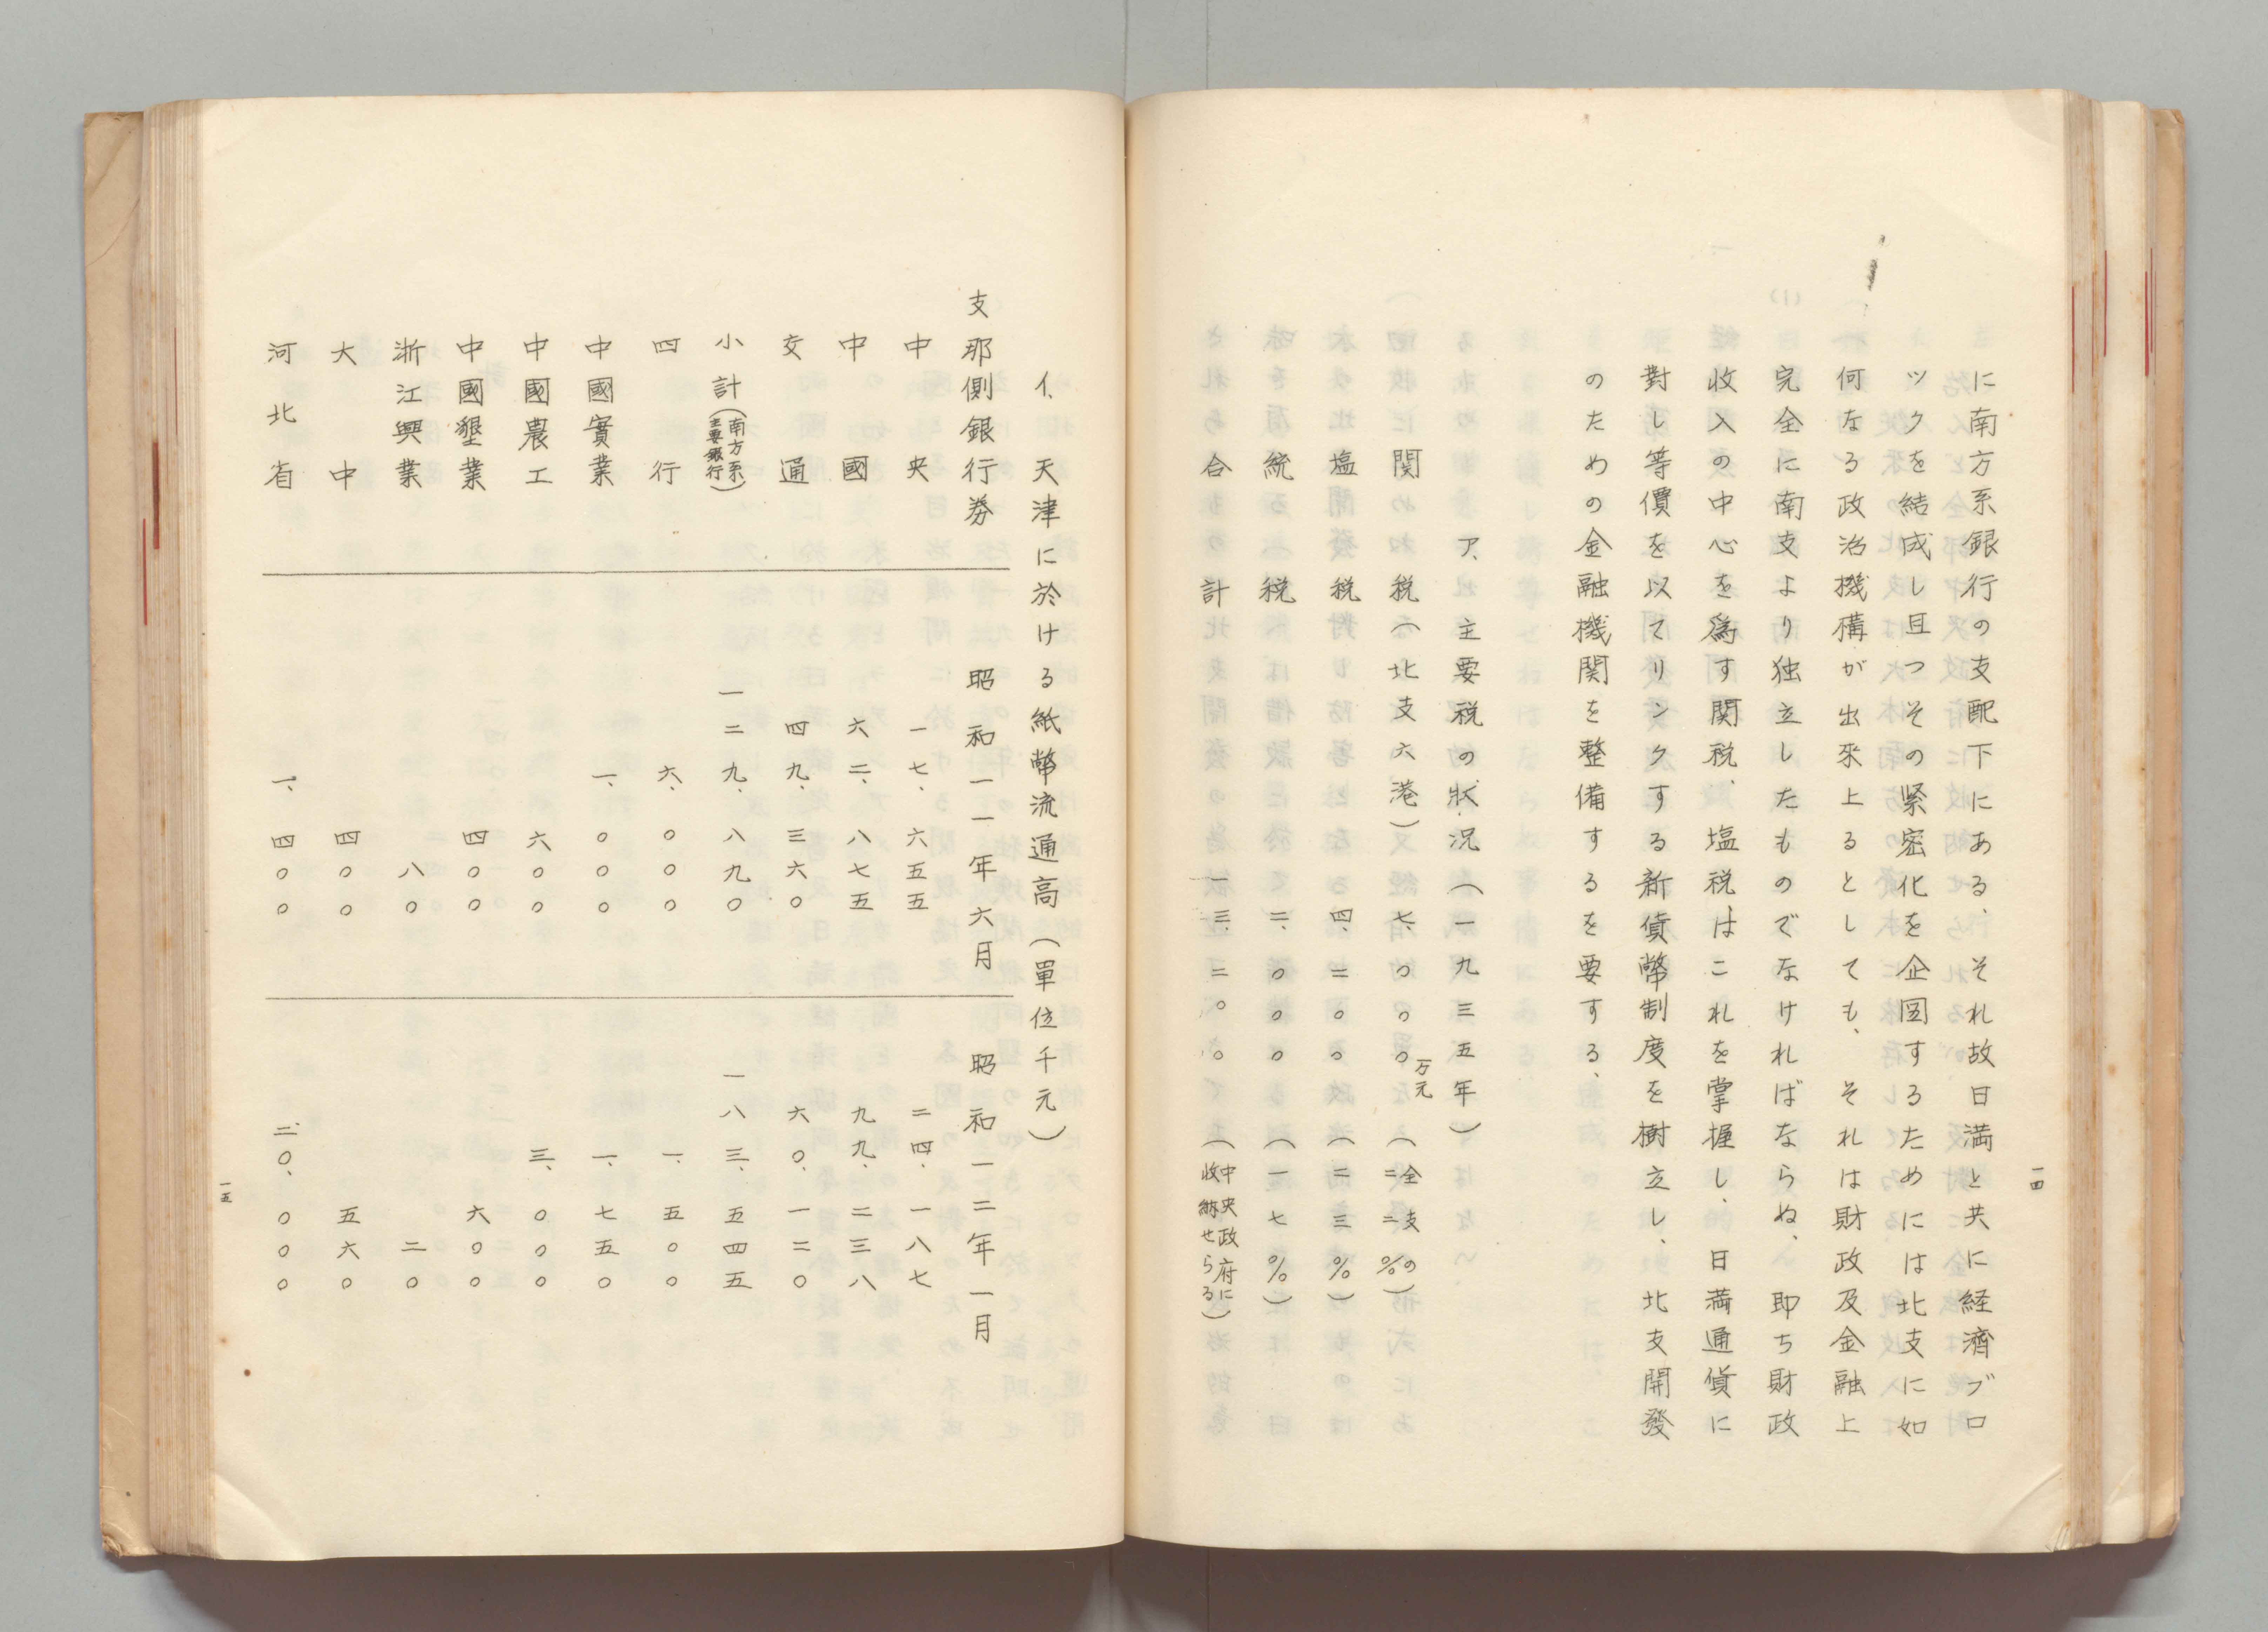 一四
に南方系銀行の支配下にある、それ故日満と共に経濟ブロ
ックを結成し且つその緊密化を企図するためには北支に如
何なる政治機構が出來上るとしても、それは財政及金融上
完全に南支より独立したものでなければならぬ、即ち財政
收入の中心を爲す関税、塩税はこれを掌握し、日満通貨に
對し等價を以てリンクする新貨幣制度を樹立し、北支開發
のための金融機関を整備するを要する、
ア、主要税の状況（一九三五年）
関税（北支六港）七、〇〇〇万元（全支の二二％）
塩税 四、二〇〇（二三％）
統税 二、〇〇〇（一七％）
合計 一三、二〇〇（中央政府に收納せらる）
イ、天津に於ける紙幣流通高（單位千元）
支那側銀行券 昭和一一年六月 昭和一二年一月
中央 一七、六五五 二四、一八七
中國 六二、八七五 九九、二三八
交通 四九、三六〇 六〇、一二〇
小計（南方系主要銀行） 一二九、八九〇 一八三、五四五
四行 六、〇〇〇 一、五〇〇
中國實業 一、〇〇〇 一、七五〇
中國農工 六〇〇 三、〇〇〇
中國墾業 四〇〇 六〇〇
浙江興業 八〇 二〇
大中 四〇〇 五六〇
河北省 一、四〇〇 二〇、〇〇〇
一五